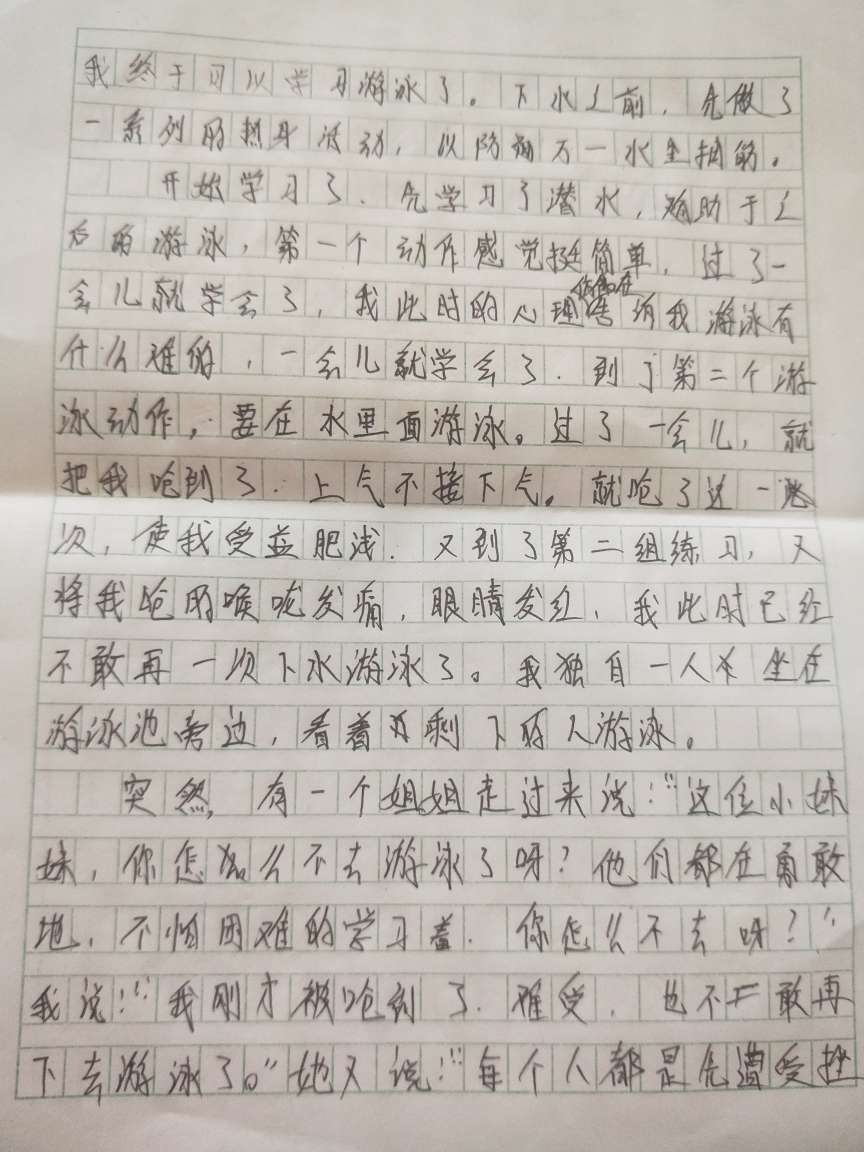 我终于可以学习游泳了。下水之前，先做了
一系列的热身活动，以防万一水里抽筋。
开始学习了．先学习了潜水，有助于之
后的游泳，第一个动作感觉挺简单．过了一
会儿就学会了，我此时的心理 我游泳有
什么难的，一会儿就学会了．到了第二个游
泳动作，要在水里面游泳。过了一会儿，就
把我呛到了．上气不接下气。就呛了这一
次，使我受益肥浅．又到了第二组练习，又
将我呛的喉咙发痛，眼睛发红，我此时已经
不敢再一次下水游泳了。我独自一人坐在
游泳池旁边，看着剩下的人游泳。
突然，有一个姐姐走过来说：“这位小妹
妹，你怎么不去游泳了呀？他们都在勇敢
地，不怕困难的学习着．你怎么不去呀？”
我说：“我刚才被呛到了．难受．也不敢再
下去游泳了。”她又说：“每个人都是先遭受挫